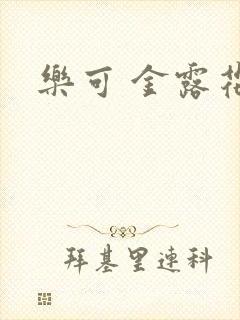 樂可 金露
拜基里連科